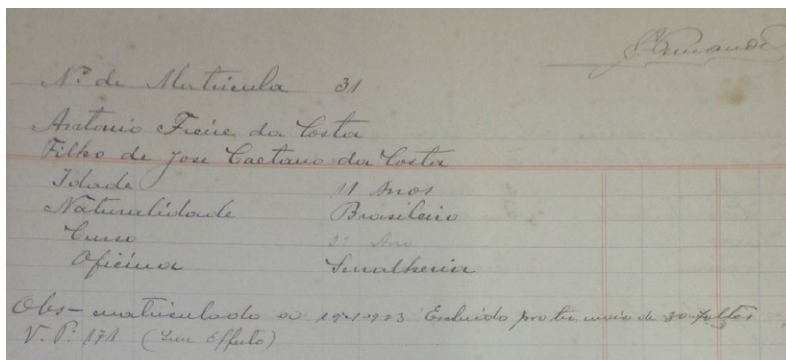 Nº de Matricula 31
Antonio Freire da Costa
Filho de Jose Caetano da Costa
Idade 11 Anos
Naturalidade Brasileiro
Curso 3º Ano
Oficina Serralheria
Obs - matriculado a Excluido por ter mais de 30 faltas
V. P. 171 (Sem Effeito)